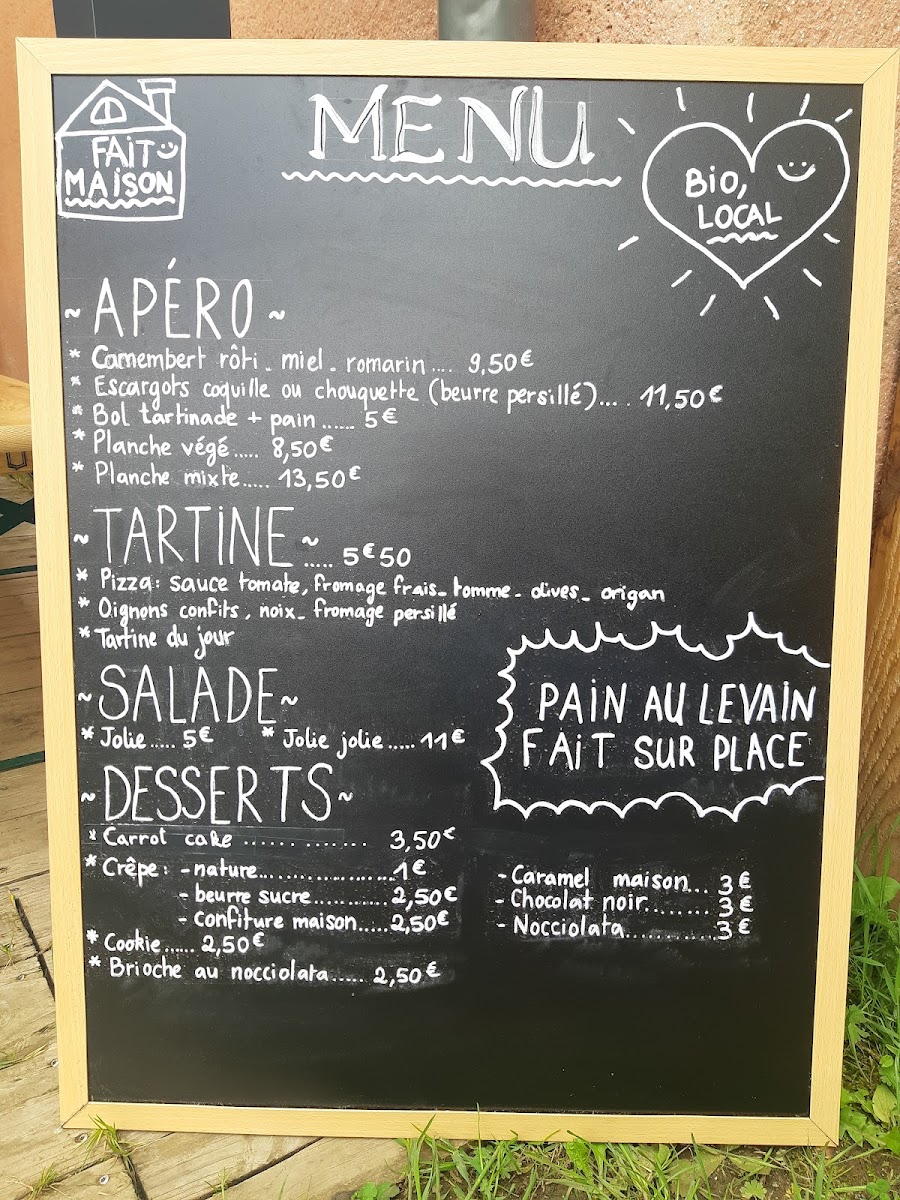 MENU
FAIT
MAISON
Bio,
LOCAL
~ APÉRO ~
* Camembert rôti - miel - romarin .... 9,50€
* Escargots coquille ou chouquette (beurre persillé).... 11,50€
* Bol tartinade + pain ...... 5€
* Planche végé..... 8,50€
* Planche mixte..... 13,50€
~ TARTINE ~ ..... 5€50
* Pizza: sauce tomate, fromage frais - tomme - olives - origan
* Oignons confits, noix - fromage persillé
* Tartine du jour
PAIN AU LEVAIN
FAIT SUR PLACE
~ SALADE ~
* Jolie ..... 5€ * Jolie jolie ..... 11€
~ DESSERTS ~
* Carrot cake ............. 3,50€
* Crêpe: - nature.....................1€
- beurre sucre............2,50€
- confiture maison.....2,50€
- Caramel maison... 3€
- Chocolat noir........ 3€
- Nocciolata............3€
* Cookie ..... 2,50€
* Brioche au nocciolata...... 2,50€